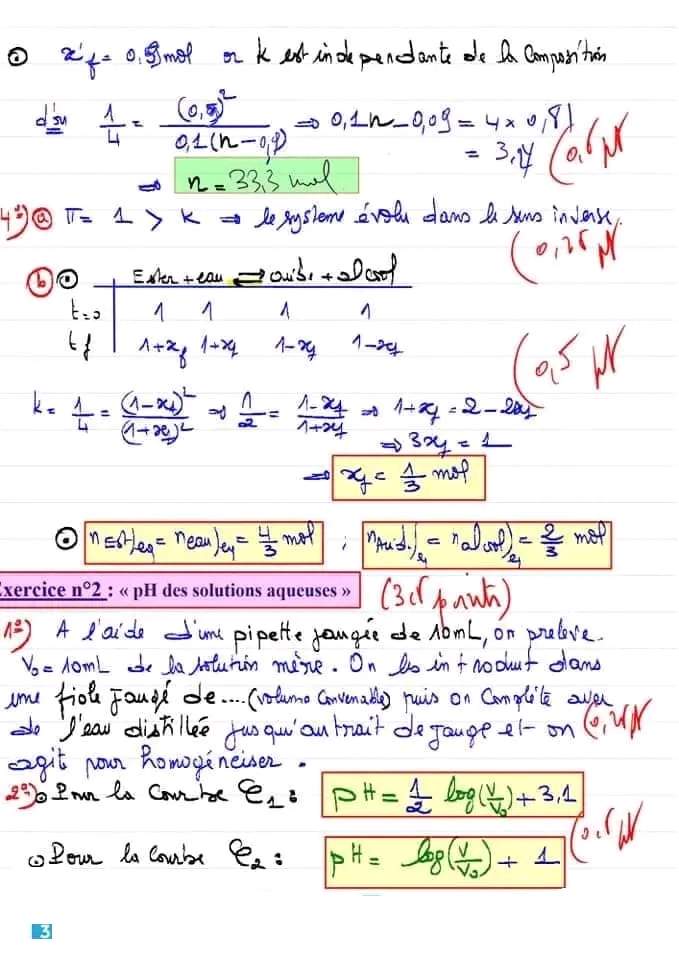 x'f = 0,9 mol or K est independante de la Composition
d'où 1/4 = (0,9)²/0,1(n-0,9) ⇒ 0,1n - 0,09 = 4 × 0,81
= 3,24
⇒ n = 33,3 mol
4°) a π = 1 > K ⇒ le système évolu dans le sens inverse. (0,25 pt
b Ester + eau ⇌ acide + alcool
t=0 1 1 1 1
tf 1+xf 1+xf 1-xf 1-xf (0,5 pt
K = 1/4 = (1-xf)²/(1+xf)² ⇒ 1/2 = 1-xf/1+xf ⇒ 1+xf = 2-2xf
⇒ 3xf = 1
⇒ xf = 1/3 mol
n Est)eq = n eau)eq = 4/3 mol ; n Acid.)eq = n alcool)eq = 2/3 mol
Exercice n°2 : « pH des solutions aqueuses » points)
1°) A l'aide d'une pipette jaugée de 10mL, on preleve
V₀ = 10mL de la solution mère. On les introduit dans
une fiole jaugé de....(volume Convenable) puis on Complète avec
de l'eau distillée jusqu'au trait de jauge et on
agit pour homogéneiser.
2°) Pour la Courbe C₁ : pH = 1/2 log(V/V₀) + 3,1
Pour la Courbe C₂ : pH = log(V/V₀) + 1
3